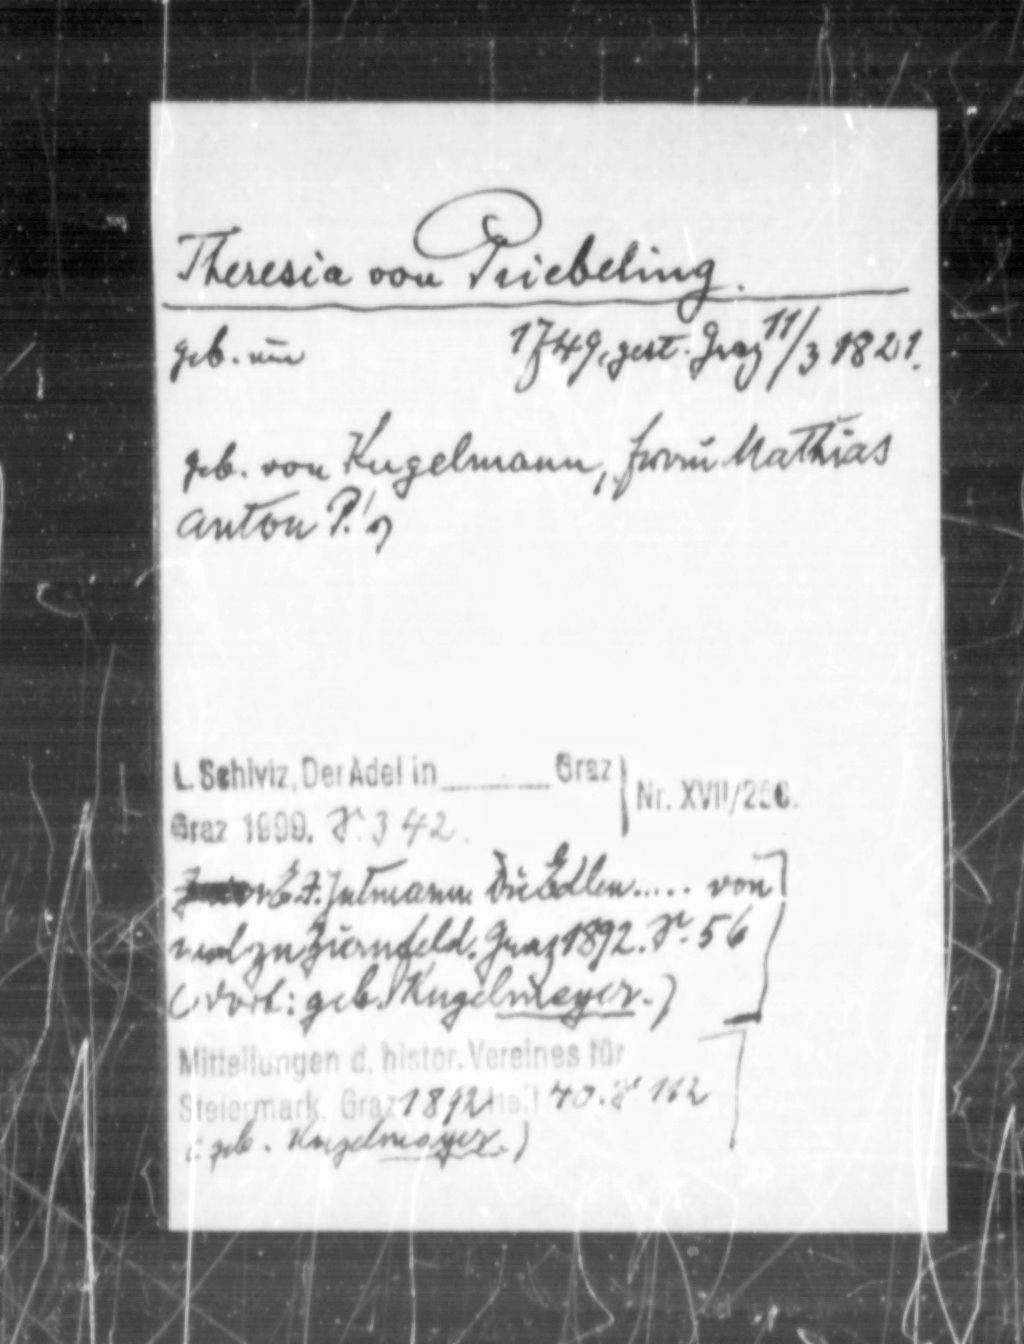 Theresia von Priebeling.
geb. um 1749, gest. Graz 11/3 1821.
geb. von Kugelmann, Frau Mathias
Anton P.'s
L. Schiviz, Der Adel in ______ Graz
Graz 1909. S. 342.
Nr. XVII/256.
E. F. Gutmann. Die Edlen..... von
und zu Ziernfeld. Graz 1892. S. 56
(dort: geb. Kugelmayer.)
Mitteilungen d. histor. Vereines für
Steiermark. Graz 1892 Heft 40. S 112
(: geb. Kugelmayer.)